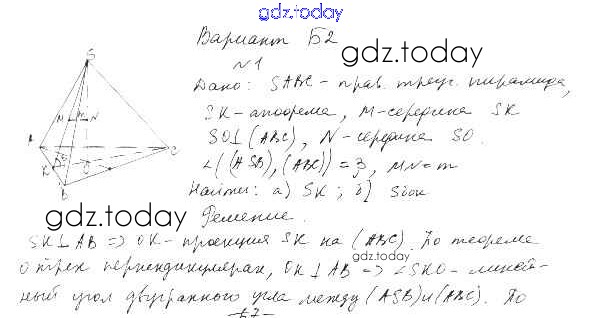 gdz.today
Вариант Б2
gdz.today
№1
Дано: SABC - прав. треуг. пирамида,
SK-апофема, M-середина SK
SO⊥(ABC), N-середина SO.
∠((ASB),(ABC))=β, MN=m
Найти: а) SK; б) Sбок
gdz.today
Решение.
SK⊥AB => OK-проекция SK на (ABC). По теореме
gdz.today
о трех перпендикулярах, OK⊥AB => ∠SKO-линей-
ный угол двугранного угла между (ASB) и (ABC). По
S
M
N
A
C
K
β
O
B